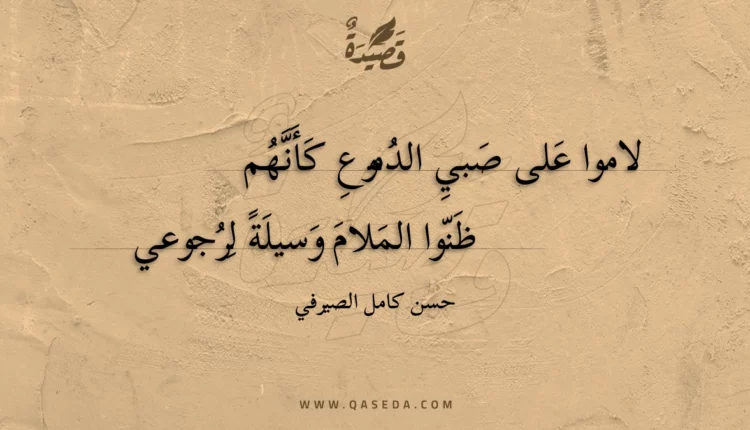 قَصِيدَةٌ
لاموا عَلى صَبيِ الدُموعِ كَأَنَّهُم
ظَنّوا المَلامَ وَسيلَةً لِرُجوعي
حسن كامل الصيرفي
WWW.QASEDA.COM